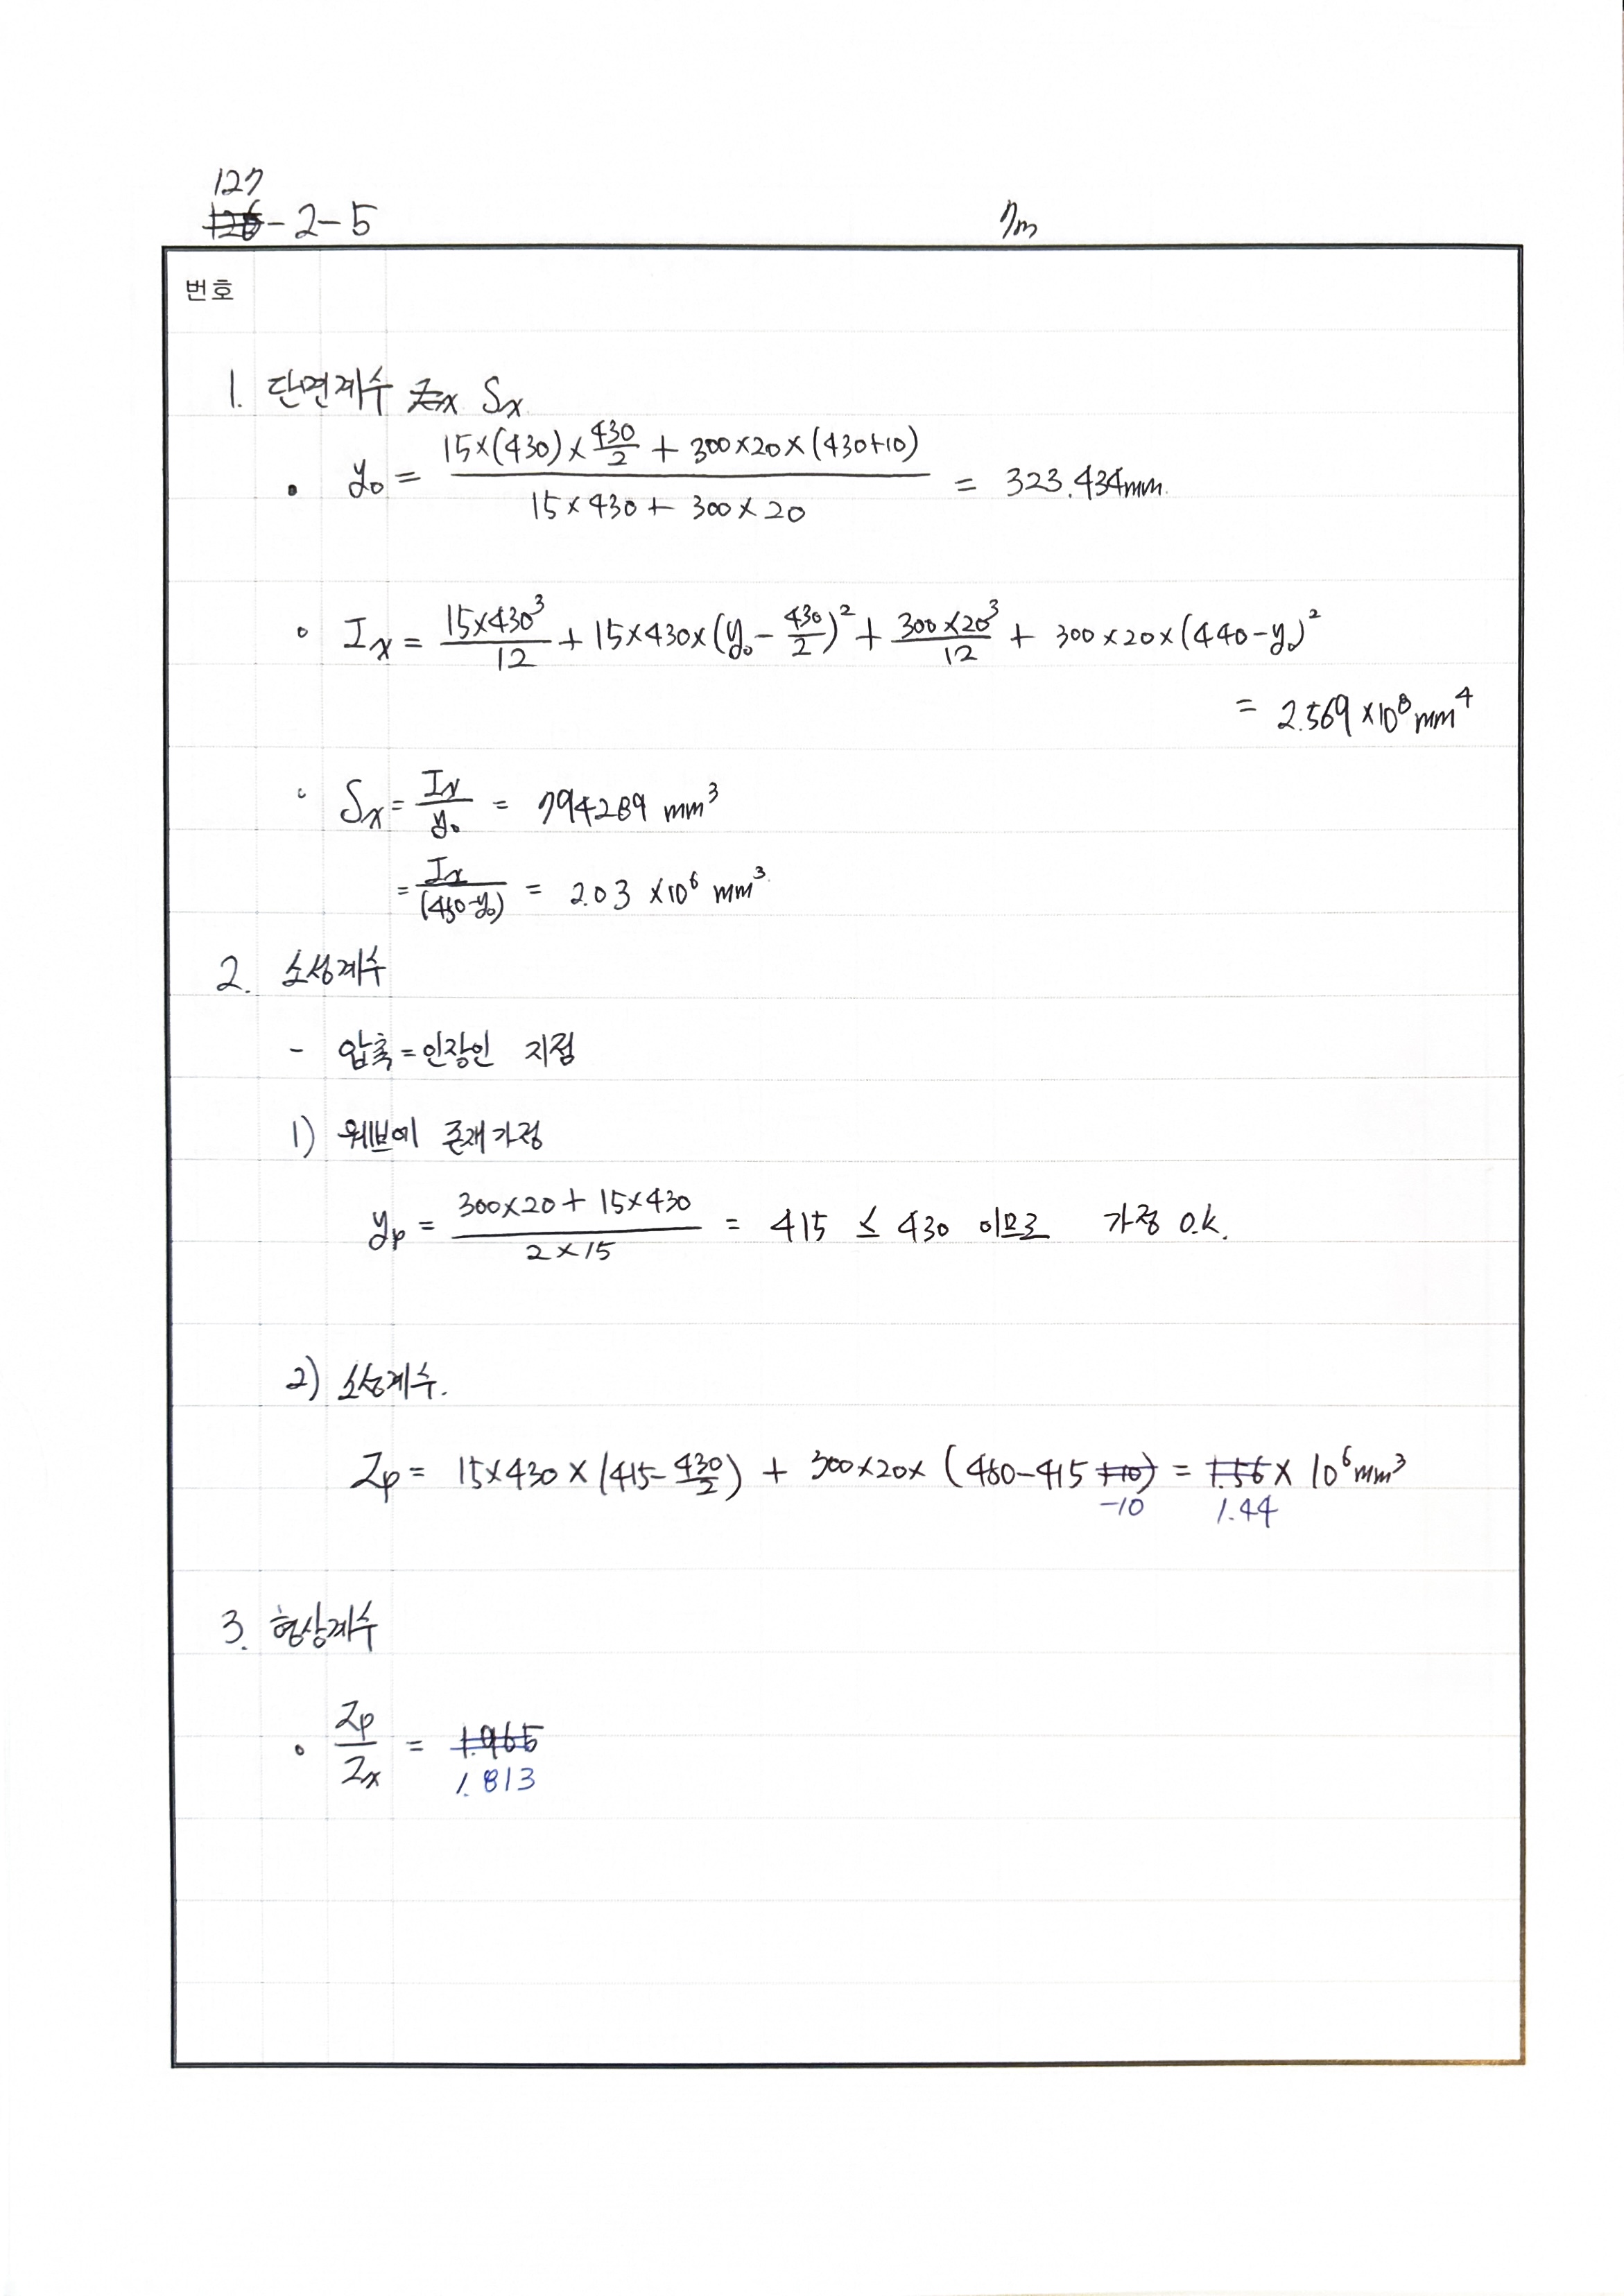 127
- 2 - 5
7m
번호
1. 단면계수 Sx
• y₀ = (15×(430)×430/2 + 300×20×(430+10)) / (15×430 + 300×20) = 323.434mm
∘ Ix = 15×430³/12 + 15×430×(y₀ - 430/2)² + 300×20³/12 + 300×20×(440-y₀)²
= 2.569 ×10⁸ mm⁴
∘ Sx = Ix/y₀ = 794289 mm³
= Ix/(450-y₀) = 2.03 ×10⁶ mm³
2. 소성계수
- 압축=인장인 지점
1) 웨브에 존재가정
yp = (300×20 + 15×430) / (2×15) = 415 ≤ 430 이므로 가정 O.K.
2) 소성계수.
Zp = 15×430×(415-430/2) + 300×20×(450-415-10) = 1.44 × 10⁶mm³
3. 형상계수
∘ Zp/Zx = 1.813